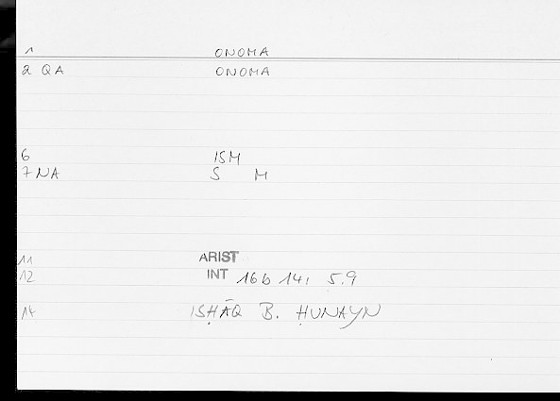 1 ONOMA
2 QA ONOMA
6 ISM
7 NA S M
11 ARIST
12 INT 16b 14, 5.9
14 ISḤĀQ B. ḤUNAYN